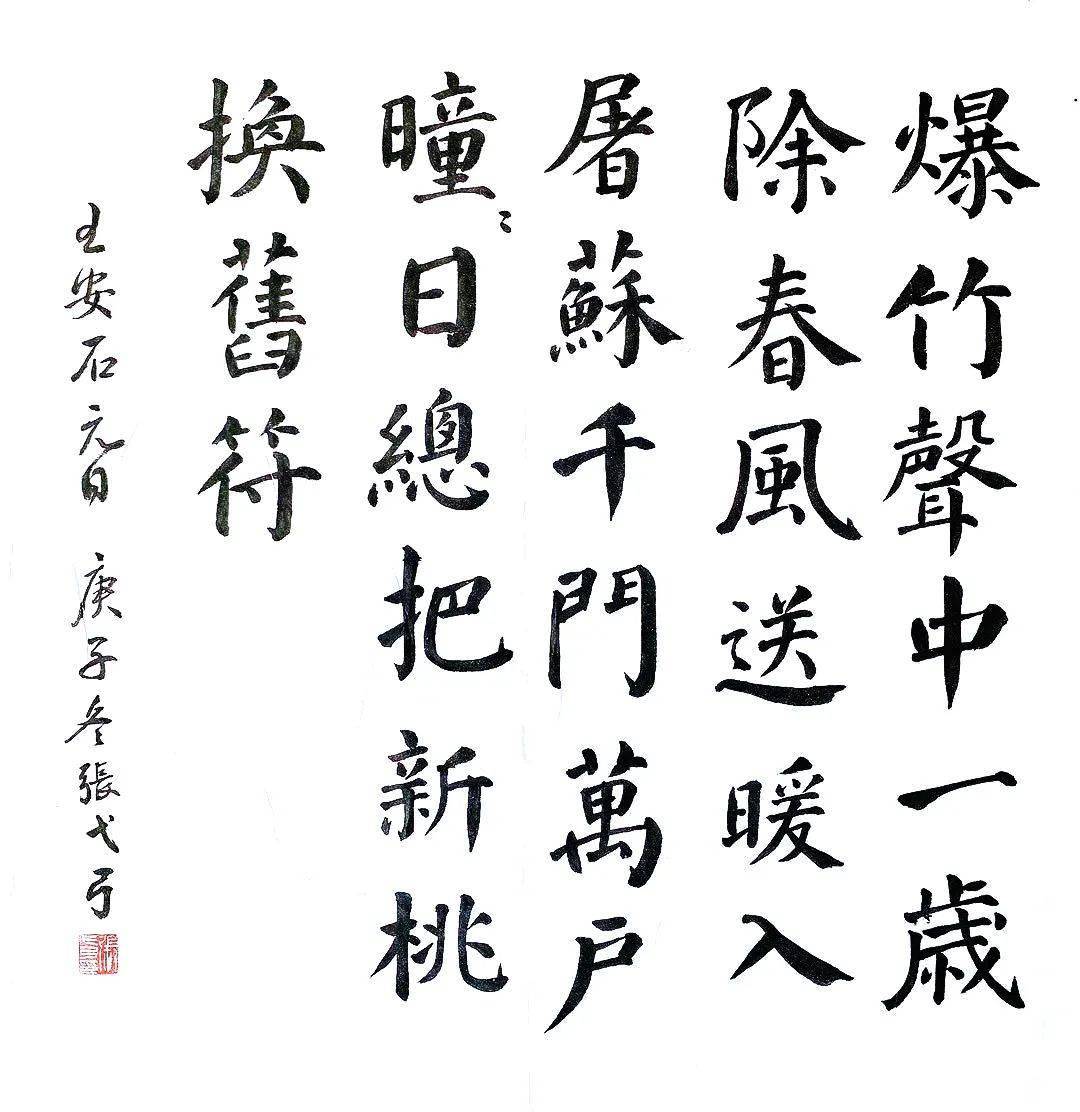 爆竹聲中一歲
除春風送暖入
屠蘇千門萬户
曈〻日總把新桃
換舊符
王安石元日 庚子冬張弋弓